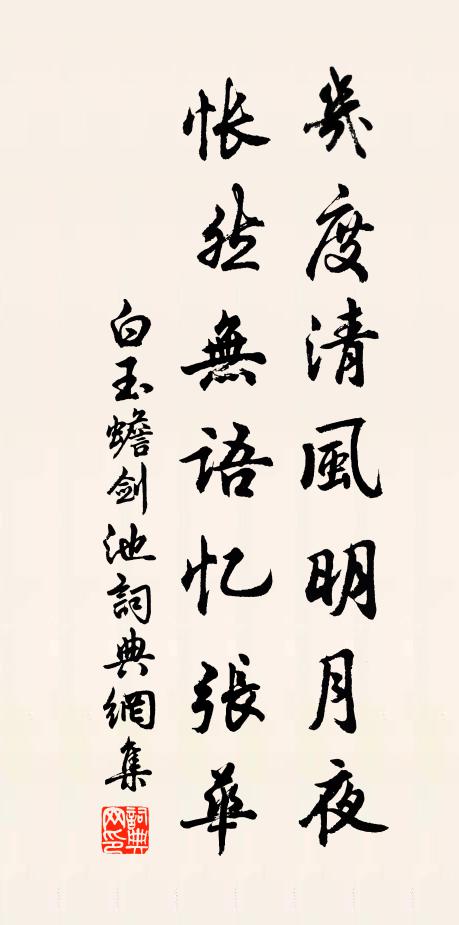 幾度清風明月夜
悵然無語忆張華
白玉蟾剑池詞典網集
詞典网印